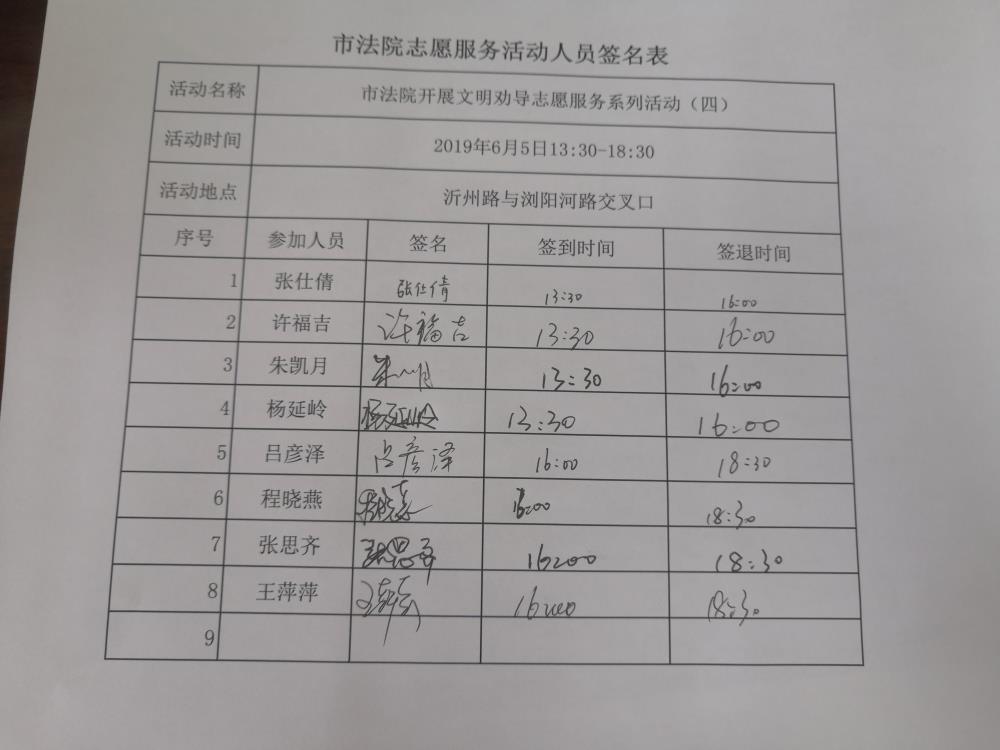 市法院志愿服务活动人员签名表
活动名称 市法院开展文明劝导志愿服务系列活动（四）
活动时间 2019年6月5日13:30-18:30
活动地点 沂州路与浏阳河路交叉口
序号 参加人员 签名 签到时间 签退时间
1 张仕倩 张仕倩 13:30 16:00
2 许福吉 许福吉 13:30 16:00
3 朱凯月 13:30 16:00
4 杨延岭 杨延岭 13:30 16:00
5 吕彦泽 吕彦泽 16:00 18:30
6 程晓燕 16:00 18:30
7 张思齐 张思齐 16:00 18:30
8 王萍萍 16:00 18:30
9